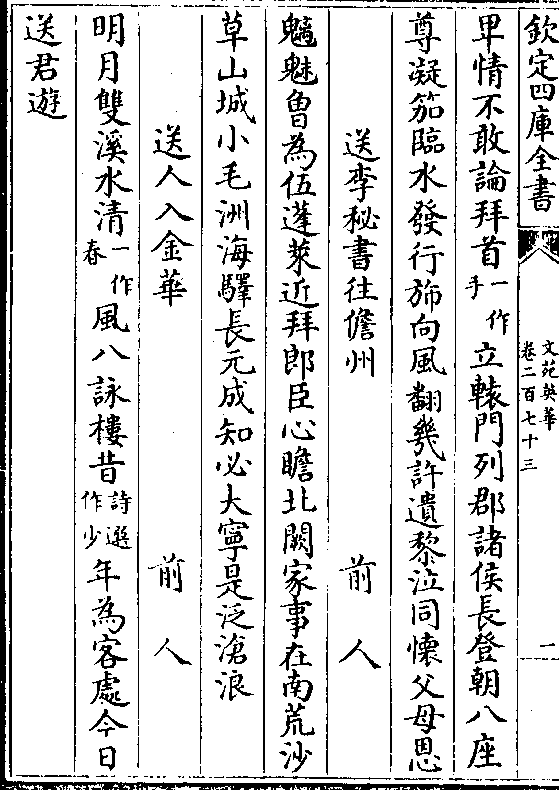 欽定四庫全書
文苑英華
卷二百七十三
一
卑情不敢論拜首一作手立轅門列郡諸侯長登朝八座
尊凝笳臨水發行斾向風翻幾許遺黎泣同懷父母恩
送李秘書往儋州 前人
魑魅曾為伍蓬萊近拜郎臣心瞻北闕家事在南荒沙
草山城小毛洲海驛長元成知必大寧是泛滄浪
送人入金華 前人
明月雙溪水清一作春風八詠樓昔詩選作少年為客處今日
送君遊